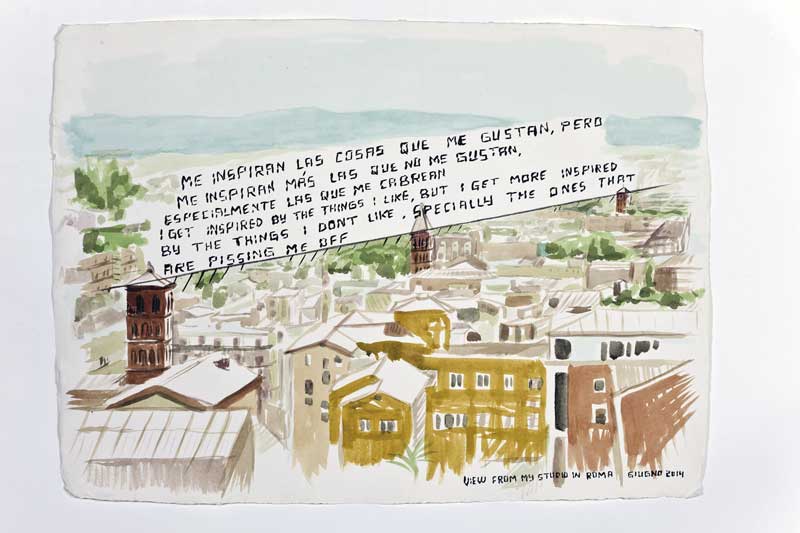 ME INSPIRAN LAS COSAS QUE ME GUSTAN, PERO
ME INSPIRAN MÁS LAS QUE NO ME GUSTAN,
ESPECIALMENTE LAS QUE ME CABREAN
I GET INSPIRED BY THE THINGS I LIKE, BUT I GET MORE INSPIRED
BY THE THINGS I DONT LIKE, SPECIALLY THE ONES THAT
ARE PISSING ME OFF
VIEW FROM MY STUDIO IN ROMA GIUGNO 2014